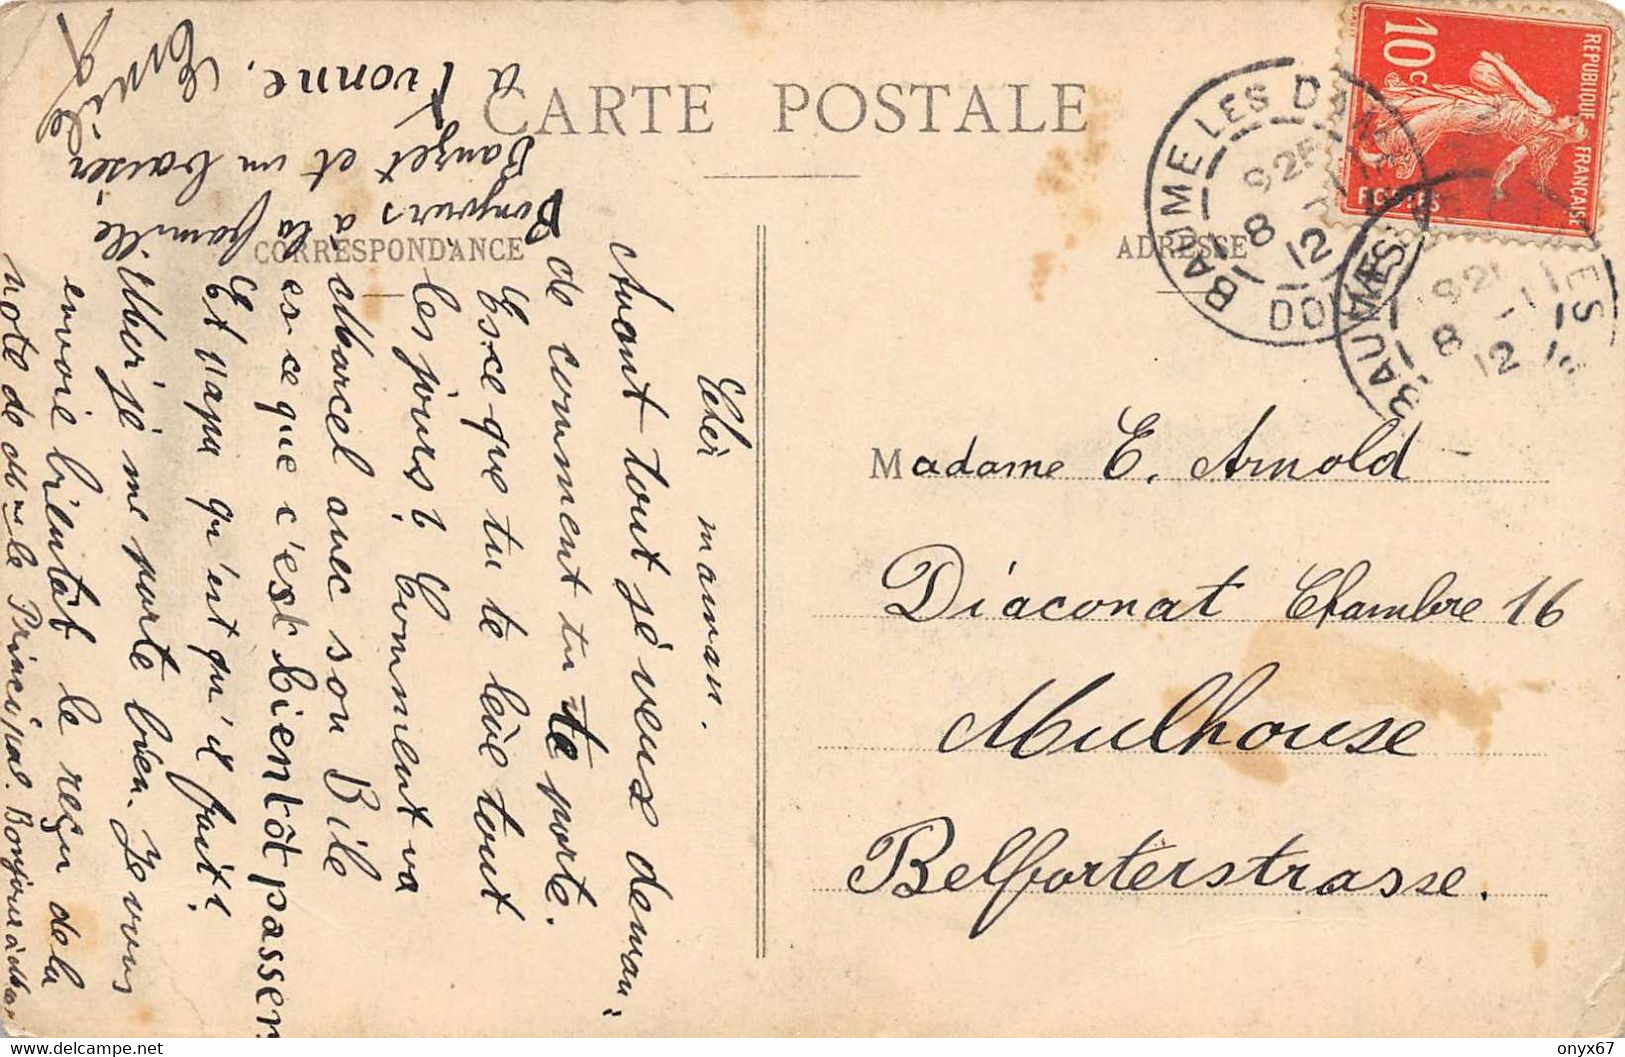 CARTE POSTALE
CORRESPONDANCE
ADRESSE
REPUBLIQUE FRANÇAISE
10c
POSTES
BAUME LES DAMES
8
12
DOUBS
BAUME LES
8
12
Madame E. Arnold
Diaconat Chambre 16
Mulhouse
Belforterstrasse.
Cher maman.
Avant tout jé veux deman-
de comment tu te porte.
Esce que tu te lève tout
les jours? Comment va
Marcel avec son Bile
es ce que c'est bientôt passer
Et papa qu'est qu'il fait?
Moi je me porte bien. Je vous
envoie bientôt le reçu de la
note de Mr le Principal. Bonjour à
Bonjours à la famille
Banzet et un baiser
à Ivonne.
Emile
onyx67